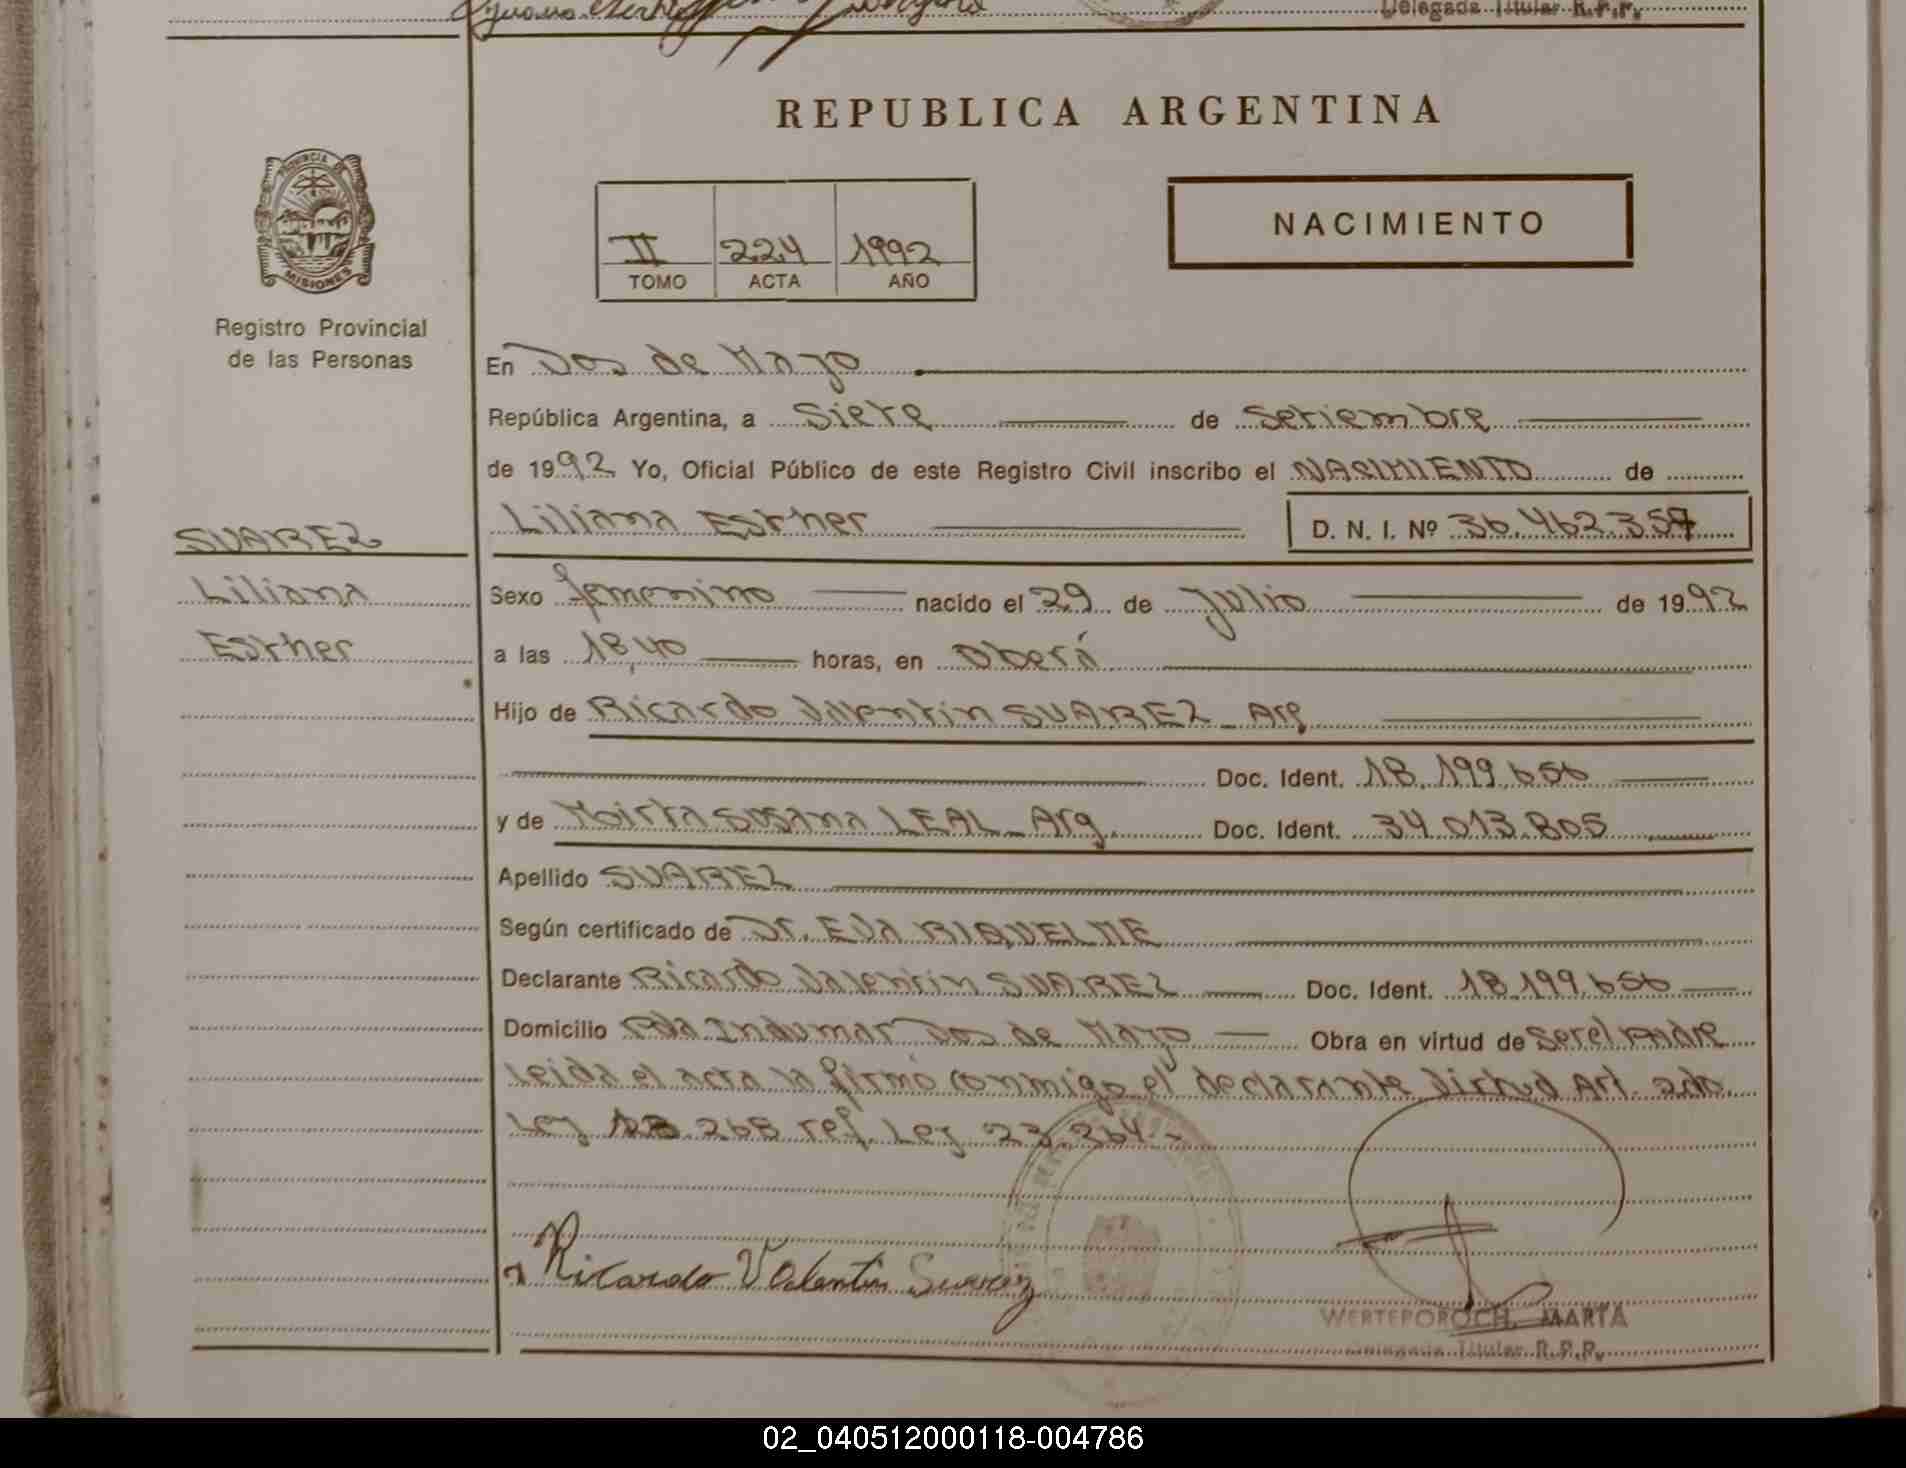 Delegada Titular R.P.P.
REPUBLICA ARGENTINA
PROVINCIA DE
MISIONES
Registro Provincial
de las Personas
II 224 1992
TOMO ACTA AÑO
NACIMIENTO
En Dos de Mayo
República Argentina, a Siete de Setiembre
de 1992 Yo, Oficial Público de este Registro Civil inscribo el NACIMIENTO de
Liliana Esther D. N. I. Nº 36.462.357
SUAREZ
Liliana
Esther
Sexo femenino nacido el 29 de Julio de 1992
a las 18,40 horas, en Oberá
Hijo de Ricardo Valentin SUAREZ - Arg
Doc. Ident. 18.199.656
y de Mirta Susana LEAL - Arg. Doc. Ident. 34.013.805
Apellido SUAREZ
Según certificado de Dr. Eva RIQUELME
Declarante Ricardo Valentin SUAREZ Doc. Ident. 18.199.656
Domicilio Pda Indumar Dos de Mayo Obra en virtud de Ser el Padre
Leida el acta la firmó conmigo el declarante Virtud Art. 2do.
Ley 18.268 ref. Ley 23.264.-
Ricardo Valentin Suarez
WERTEPOROCH, MARTA
Delegada Titular R.P.P.
02_040512000118-004786